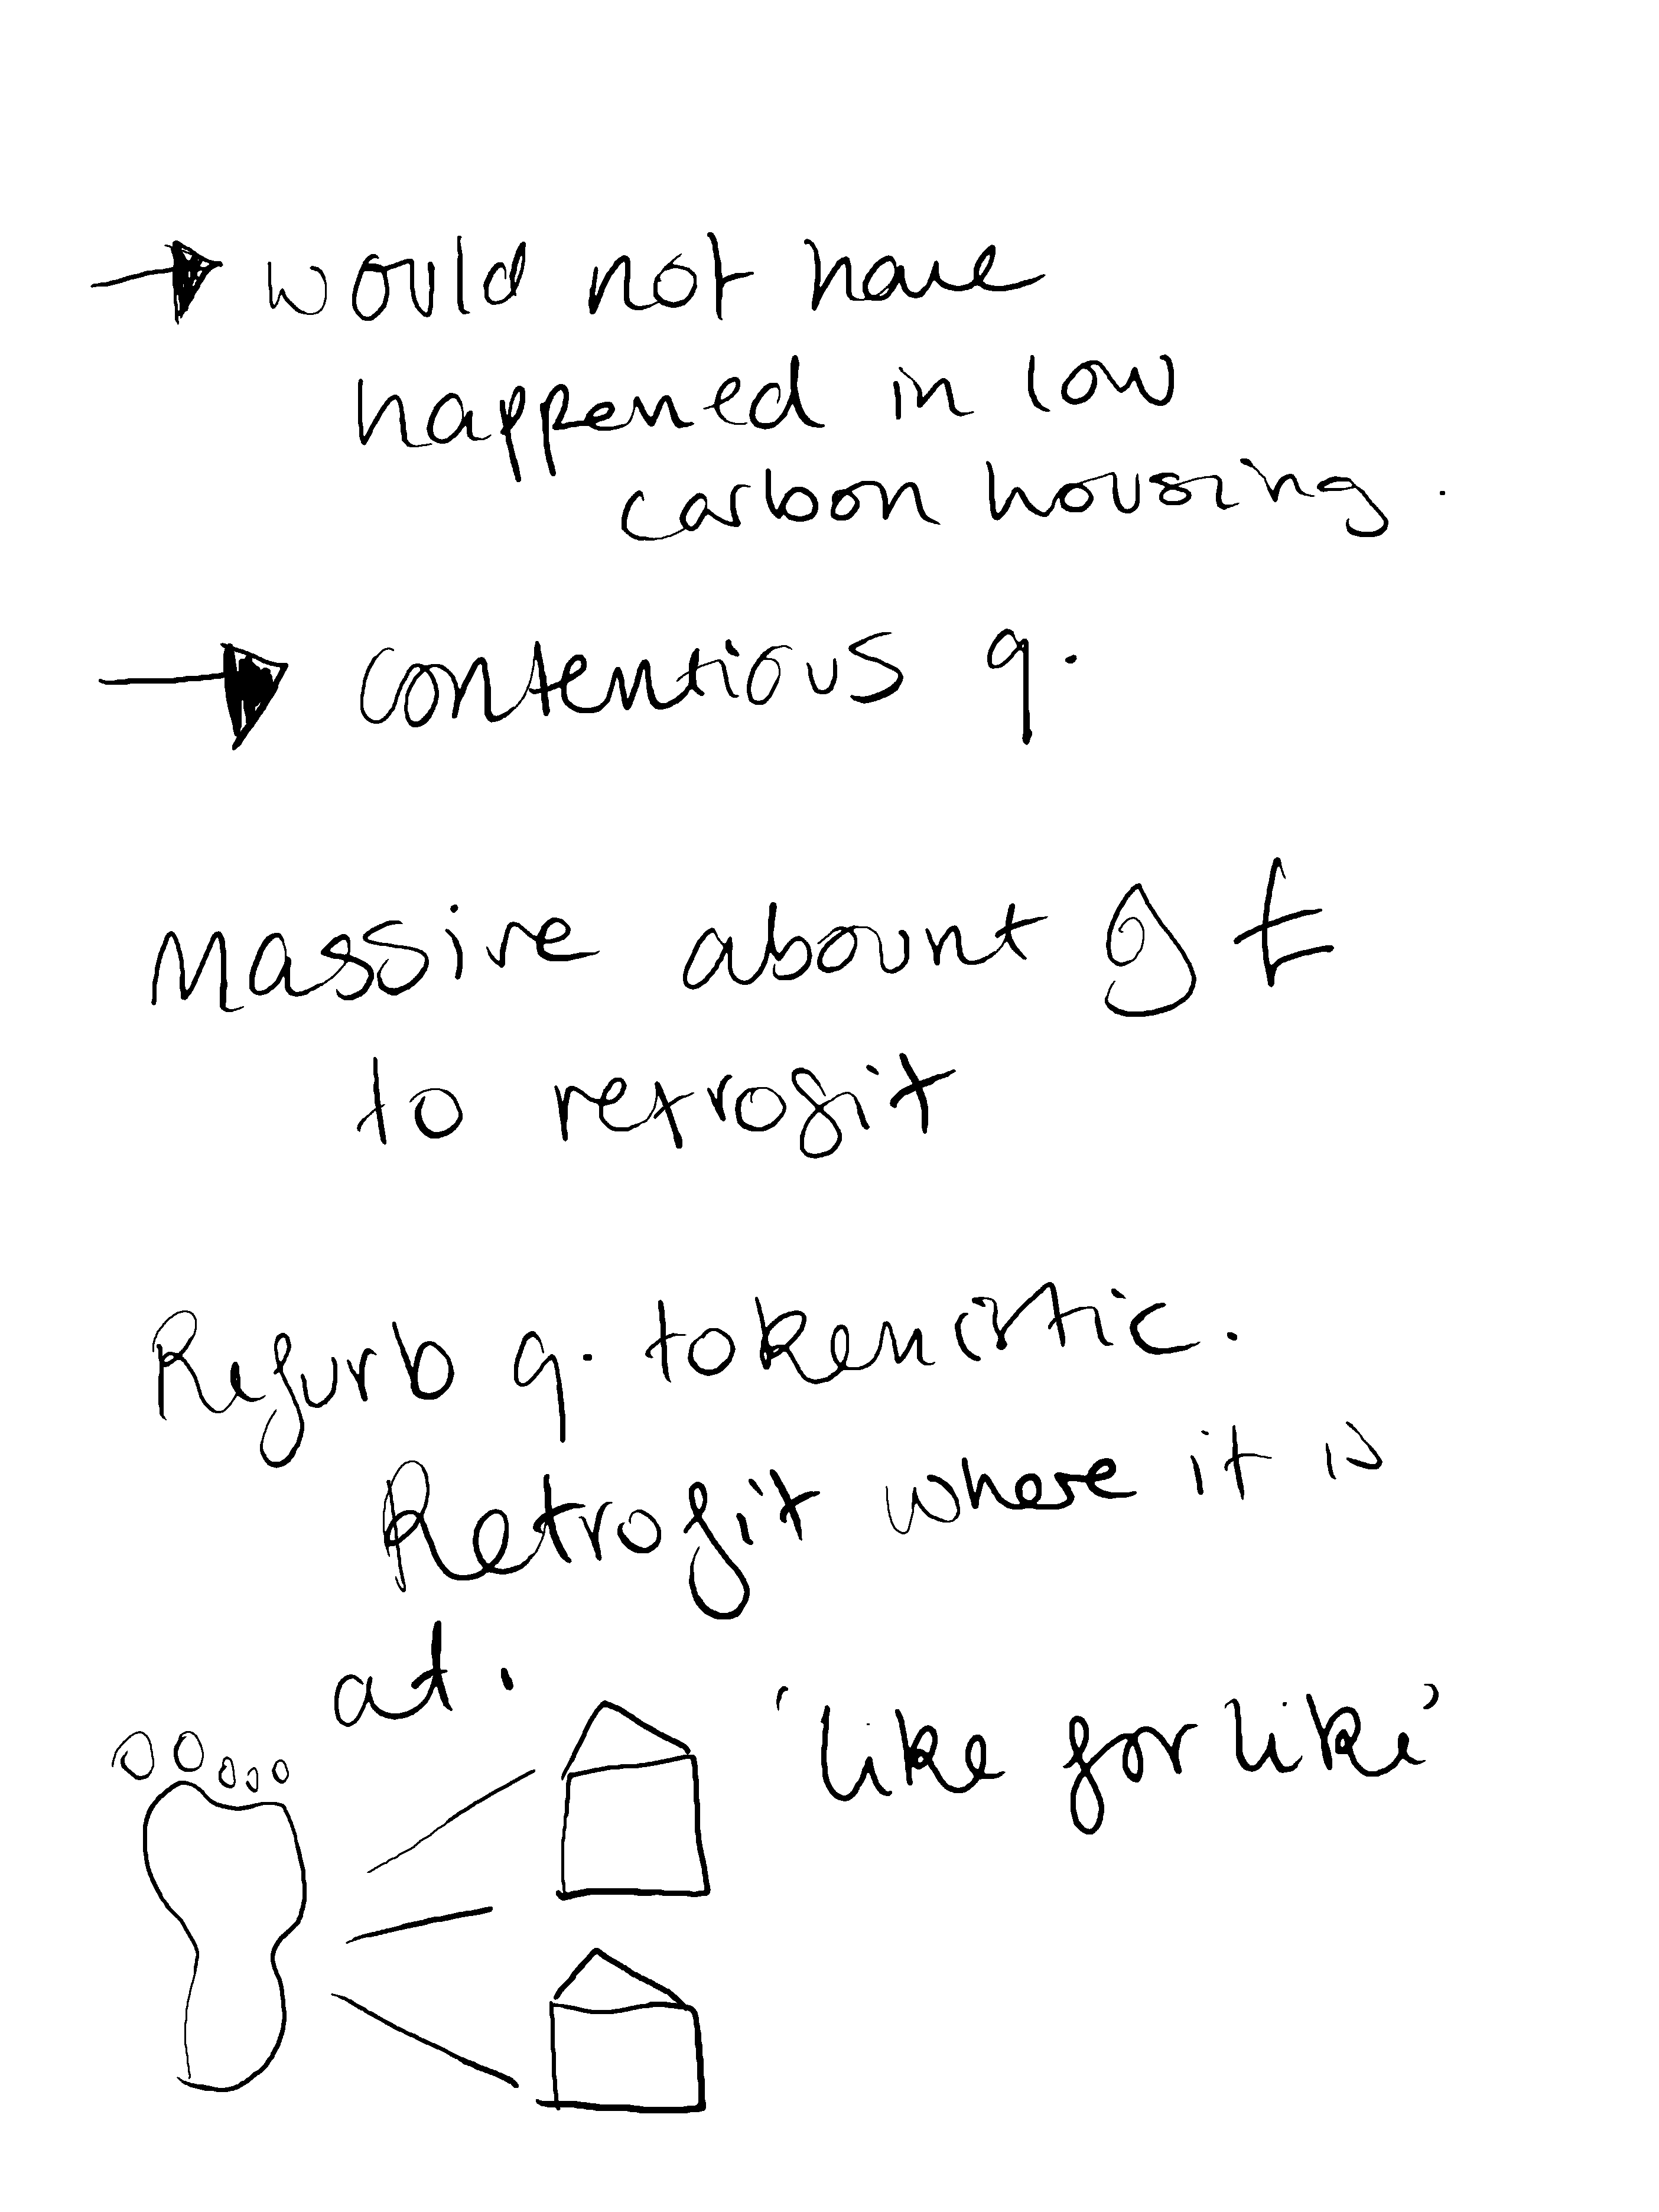 → would not have
happened in low
carbon housing.
→ contentious q.
Massive abount of £
to retrofit
Refurb q. tokenistic.
Retrofit where it is
at.
'like for like'